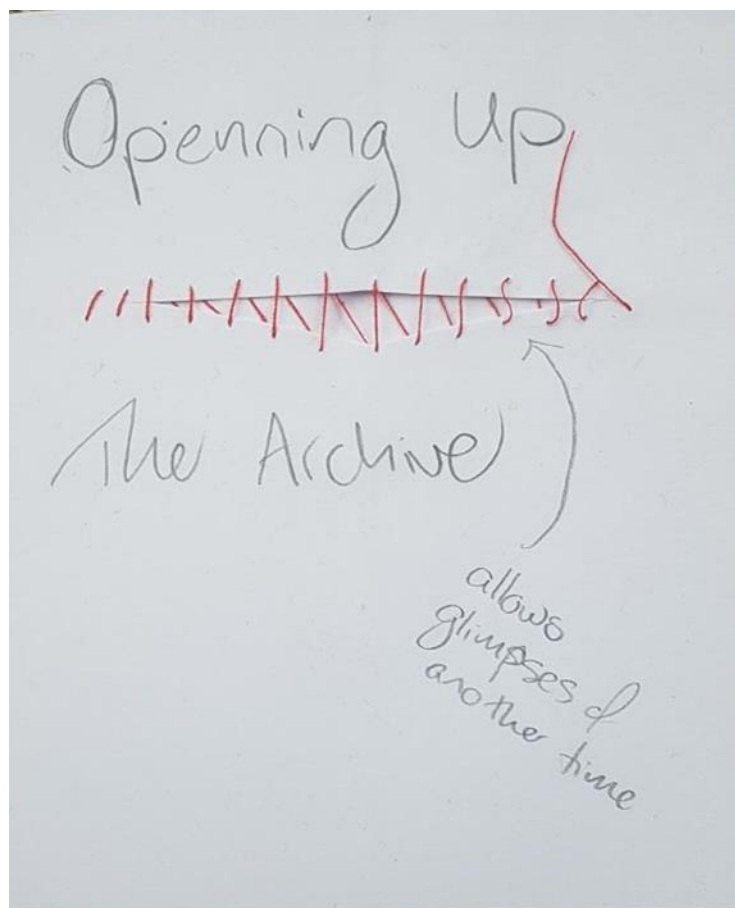 Openning Up
The Archive
allows
glimpses of
another time